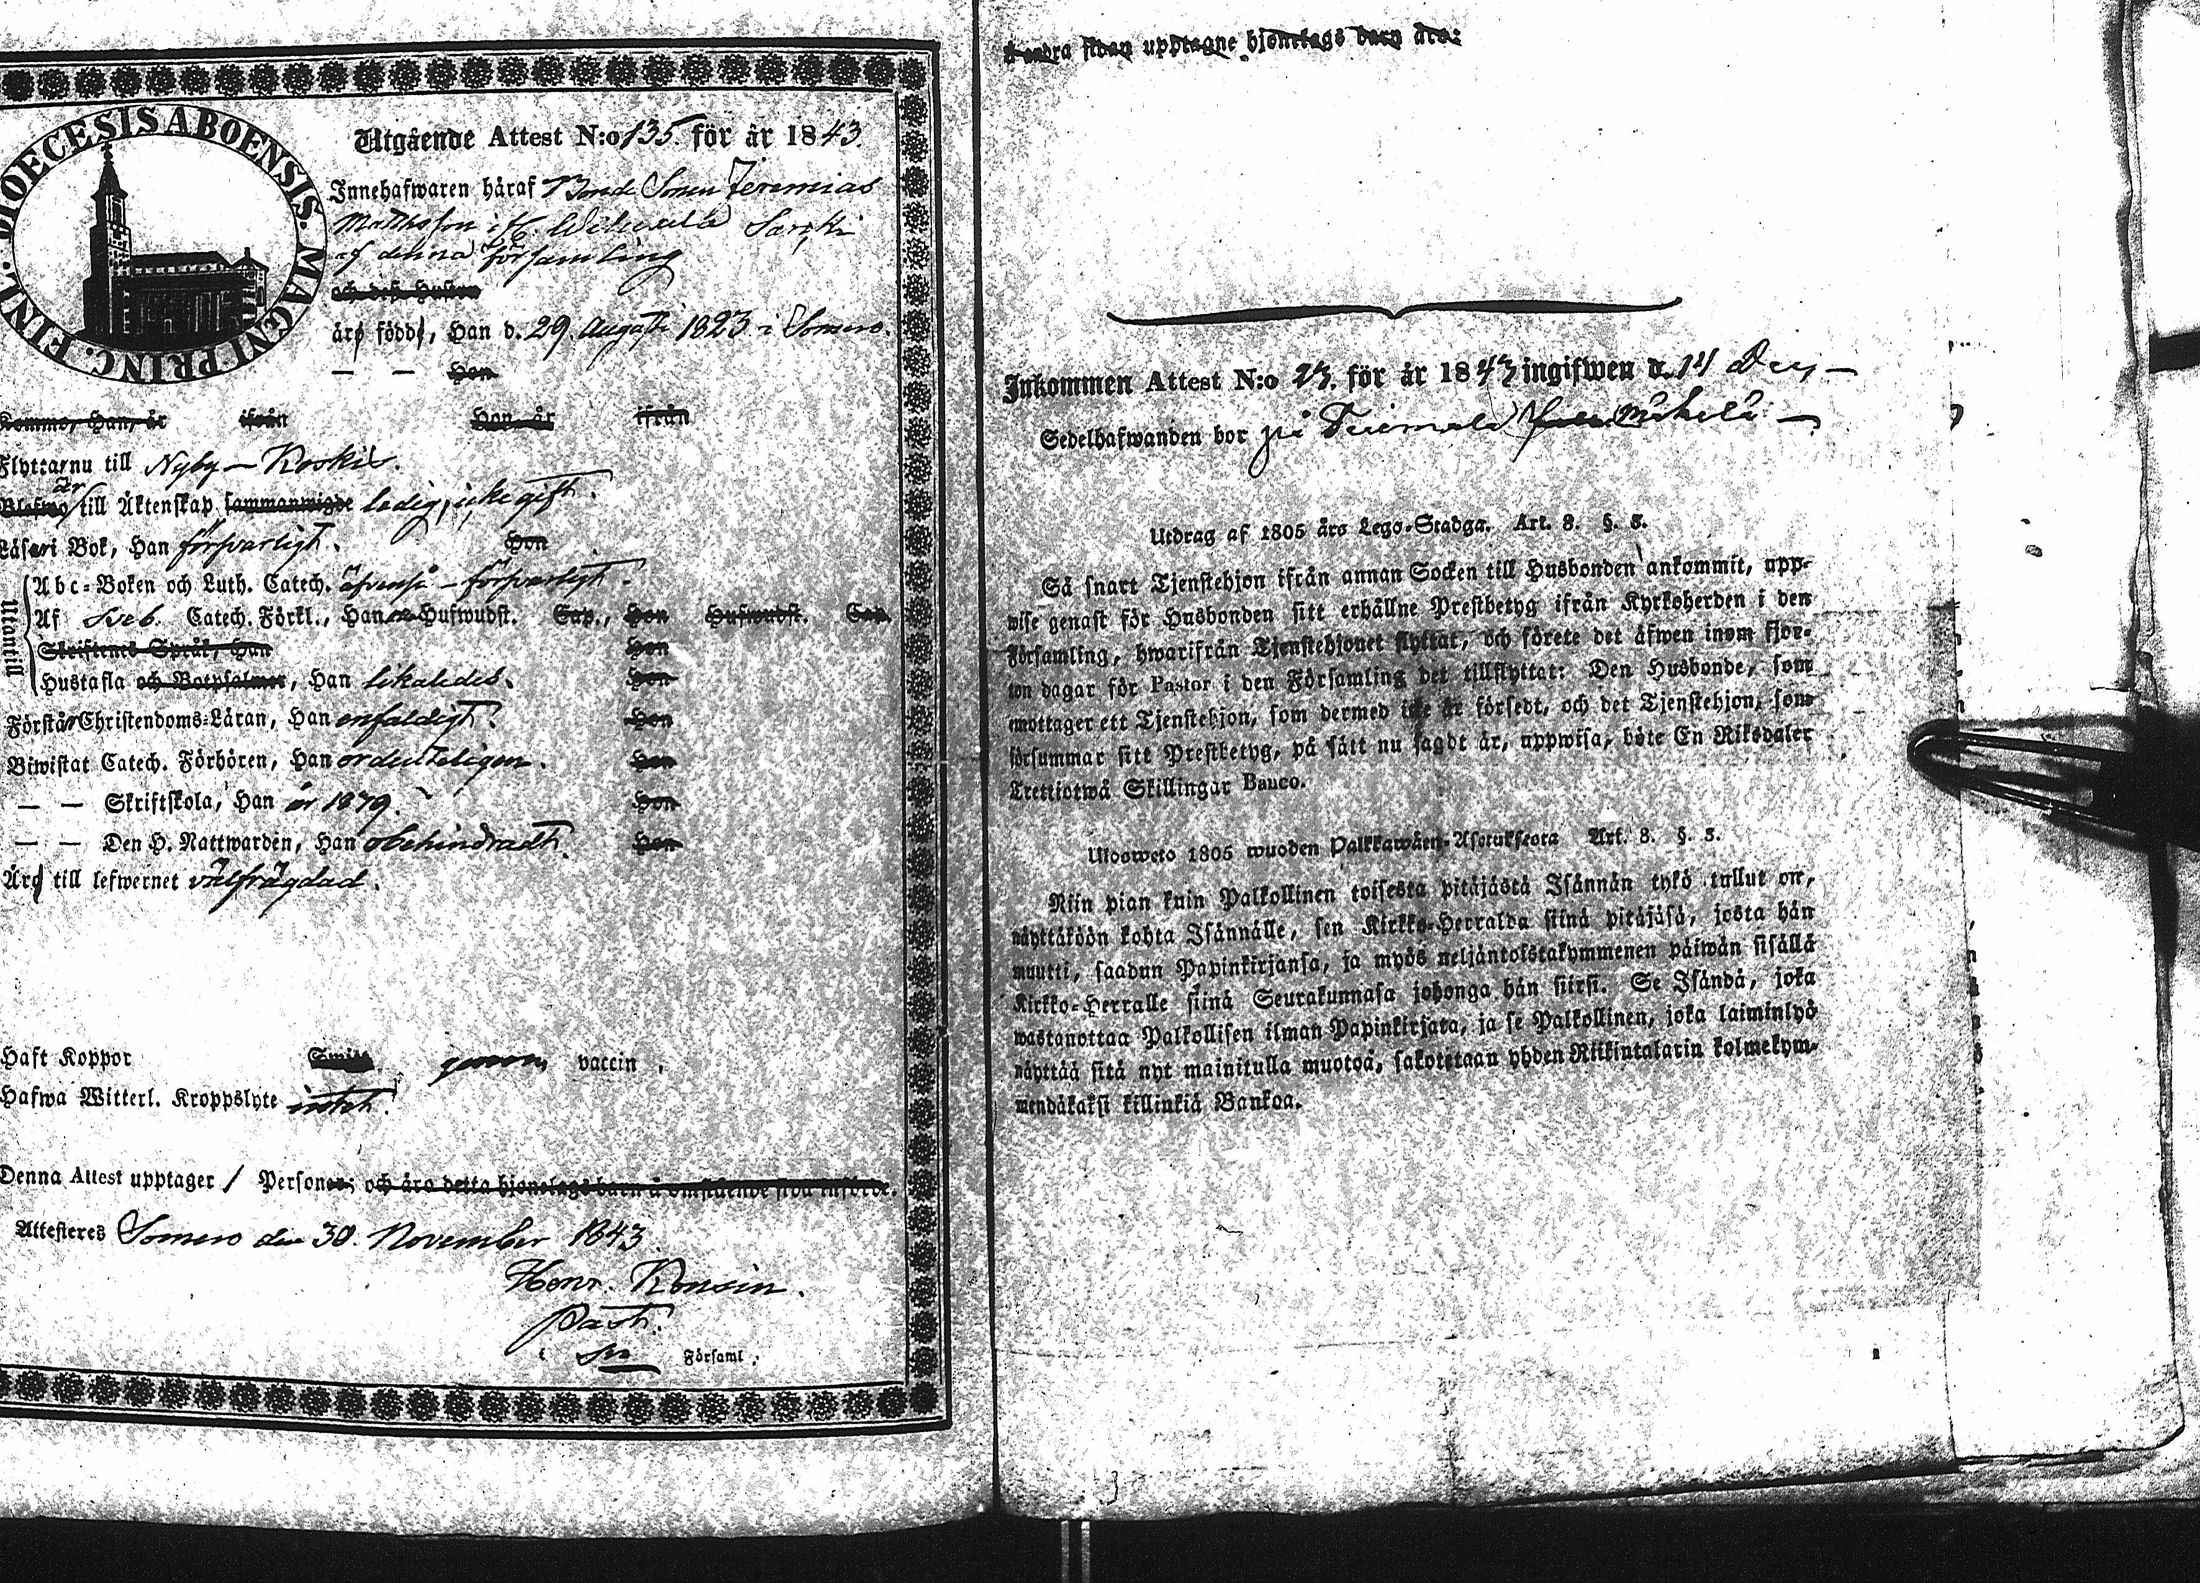 FINL. DIOECESIS ABOENSIS. MAGNI PRINC.
Utgående Attest N:o 135. för år 1843.
Innehafwaren häraf Bonde Sonen Jeremias
Mattsson i
af denna församling
och dess Hustru
äro födde, Han d. 29. Augusti 1823 i Somero.
— — Hon
Kommo, Han, år ifrån Hon år ifrån
Flyttar nu till Nyby — Koskis.
är
till Äktenskap sammanwigde ledig, icke gift.
Läser i Bok, Han försvarligt. Hon
Utantill
Abc-Boken och Luth. Catech. äfvenså — försvarligt.
Af Sveb. Catech. Förkl., Han Hufwudst. Sap., Hon Hufwudst. Sap.
Skriftenes Språk, Han Hon
Hustafla och Botpsalmer, Han likaledes. Hon
Förstår Christendoms-Läran, Han enfaldigt. Hon
Biwistat Catech. Förhören, Han ordenteligen. Hon
— — Skriftskola, Han Hon
— — Den H. Nattwarden, Han obehindradt. Hon
Äro till lefwernet välfrägdad.
Haft Koppor vaccin,
Hafwa Witterl. Kroppslyte intet.
Denna Attest upptager 1 Personer; och äro detta hjonelags barn å omstående sida införde.
Attesteres Somero den 30. November 1843.
Henr. Konsin.
Past.
i Församl.
å andra sidan upptagne hjonelags barn äro:
Inkommen Attest N:o 23. för år 1843 ingifwen d. 14 Dec, —
Sedelhafwanden bor på Mäkelä —
Utdrag af 1805 års Lego-Stadga. Art. 8. §. 5.
Så snart Tjenstehjon ifrån annan Socken till Husbonden ankommit, upp-
wise genast för Husbonden sitt erhållne Prestbetyg ifrån Kyrkoherden i den
Församling, hwarifrån Tjenstehjonet flyttat, och förete det äfwen inom fjor-
ton dagar för Pastor i den Församling det tillflyttat: Den Husbonde, som
emottager ett Tjenstehjon, som dermed icke är försedt, och det Tjenstehjon, som
försummar sitt Prestbetyg, på sätt nu sagdt är, uppwisa, böte En Riksdaler
Trettiotwå Skillingar Banco.
Ulosweto 1805 wuoden Palkkawäen-Asetuksesta Art. 8. §. 5.
Niin pian kuin Palkollinen toisesta pitäjästä Isännän tykö tullut on,
näyttäköön kohta Isännälle, sen Kirkko-Herralda siinä pitäjäsä, josta hän
muutti, saadun Papinkirjansa, ja myös neljäntoistakymmenen päiwän sisällä
Kirkko-Herralle siinä Seurakunnasa johonga hän siirsi. Se Isändä, joka
wastanottaa Palkollisen ilman Papinkirjata, ja se Palkollinen, joka laiminlyö
näyttää sitä nyt mainitulla muotoa, sakotetaan yhden Riikintalarin kolmekym-
mendäkaksi killinkiä Bankoa.